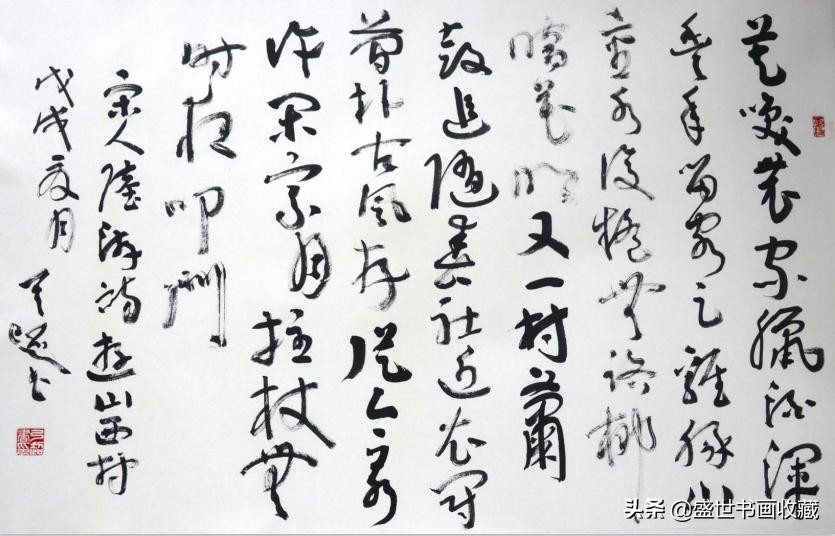 莫笑農家臘酒渾
豐年留客足雞豚山
重水復疑無路柳
暗花明又一村蕭
鼓追隨春社近衣冠
簡朴古風存從今若
許閑乘月拄杖無
時夜叩門
宋人陸游詩遊山西村
戊戌夏月
书
头条 @盛世书画收藏